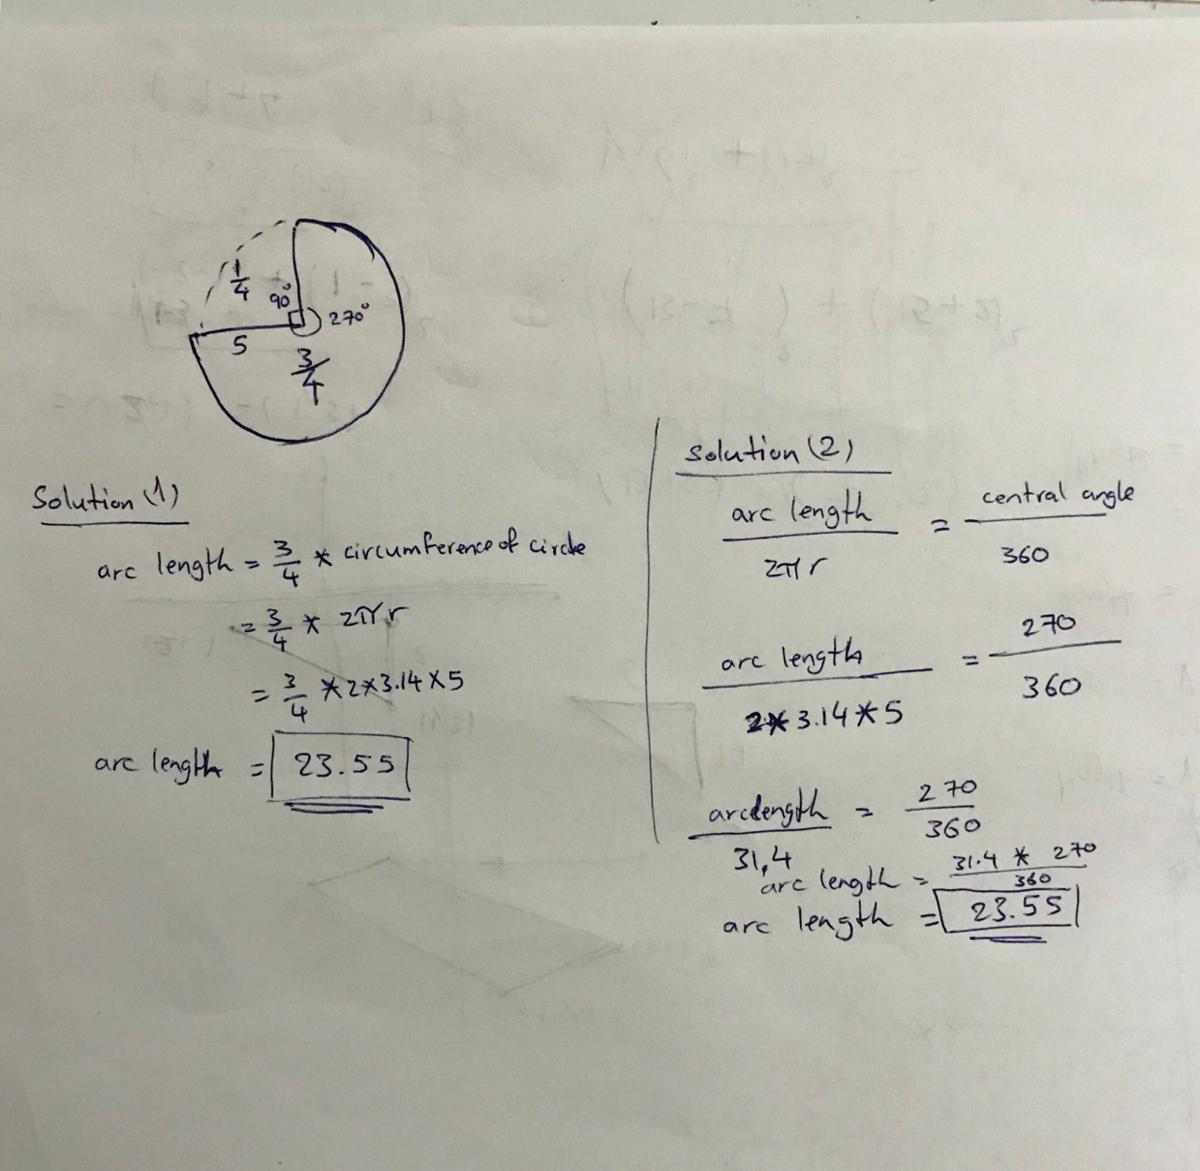 1/4
90°
270°
5
3/4
Solution (1)
arc length = 3/4 * circumference of circle
= 3/4 * 2πr
= 3/4 * 2*3.14×5
arc length = 23.55
Solution (2)
arc length / 2πr = central angle / 360
arc length / 2*3.14*5 = 270 / 360
arc length / 31,4 = 270 / 360
arc length = 31.4 * 270 / 360
arc length = 23.55